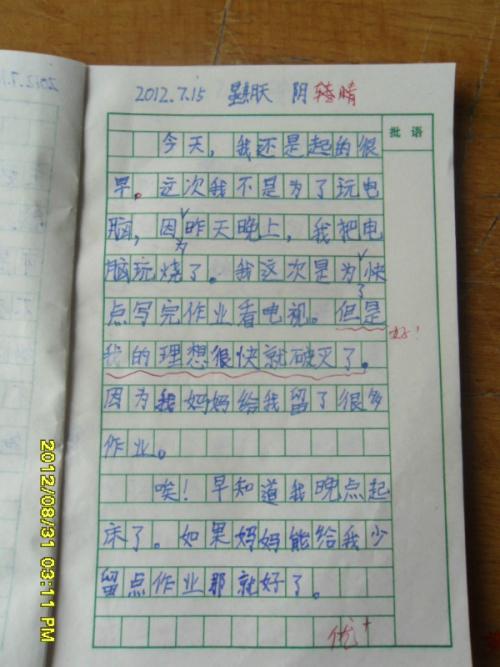 2012.7.15 星期天 阴转晴
批语
今天，我还是起的很
早。这次我不是为了玩电
脑，因为昨天晚上，我把电
脑玩烧了。我这次是为了快
点写完作业看电视。但是
好！
我的理想很快就破灭了。
因为我妈妈给我留了很多
作业。
唉！早知道我晚点起
床了。如果妈妈能给我少
留点作业那就好了。
优+
2012/08/31 03:11 PM